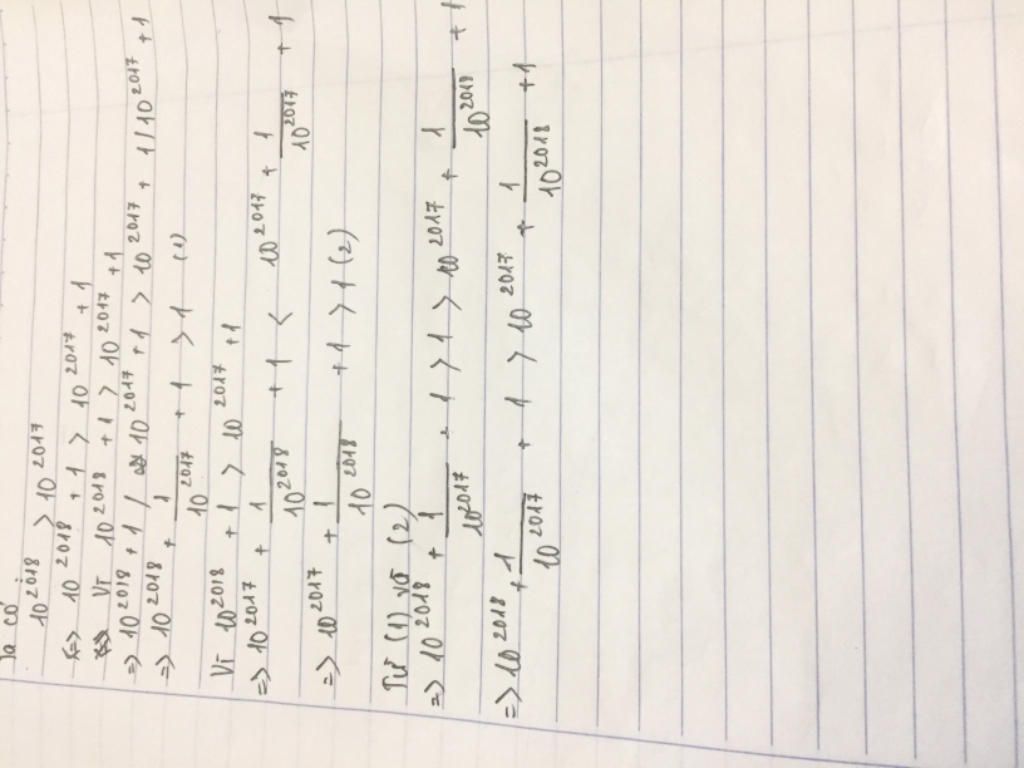 Ta có
10^2018 > 10^2017
<=> 10^2018 + 1 > 10^2017 + 1
Vì 10^2018 + 1 > 10^2017 + 1
=> 10^2018 + 1 / 10^2017 + 1 > 10^2017 + 1 / 10^2017 + 1
=> 10^2018 + 1/10^2017 + 1 > 1 (1)
Vì 10^2018 + 1 > 10^2017 + 1
=> 10^2017 + 1/10^2018 + 1 < 10^2017 + 1/10^2017 + 1
=> 10^2017 + 1/10^2018 + 1 > 1 (2)
Từ (1) và (2)
=> 10^2018 + 1/10^2017 + 1 > 1 > 10^2017 + 1/10^2018 + 1
=> 10^2018 + 1/10^2017 + 1 > 10^2017 + 1/10^2018 + 1